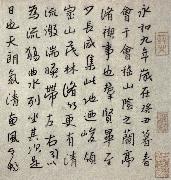 永和九年歲在癸丑暮春
會于會稽山陰之蘭亭
脩禊事也羣賢畢至
少長咸集此地峻領
崇山茂林脩竹更有清
流激湍暎帶左右引
為流觴曲水列坐其次是
日也天朗氣清惠風和